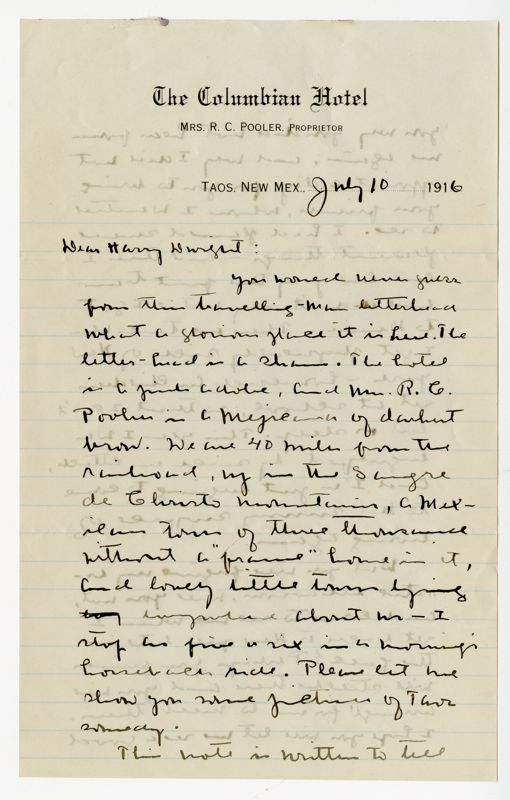 The Columbian Hotel
MRS. R. C. POOLER, PROPRIETOR
TAOS, NEW MEX., July 10 1916
Dear Harry Dwight:
You would never guess
from this travelling-man letterhead
what a glorious place it is here. The
letter-head is a sham. The hotel
is a pink adobe, and Mrs. R. C.
Pooler is a Mejicana of darkest
brow. We are 40 miles from the
railroad, up in the Sangre
de Christo mountains, a Mex-
ican town of three thousand
without a "frame" house in it,
and lovely little towns lying
about us – I
stop at five or six in a morning's
horseback ride. Please let me
show you some pictures of Taos
someday.
This note is written to tell